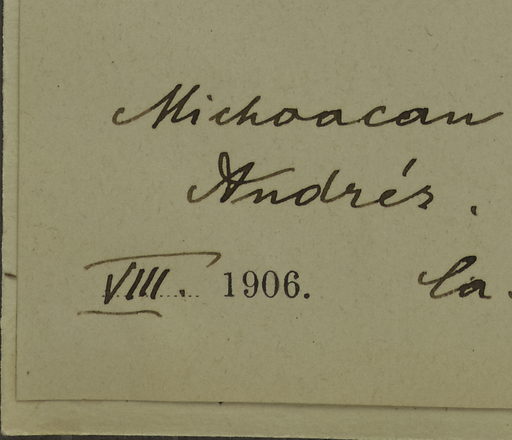 Michoacan
Andrés.
VIII. 1906. Ca.